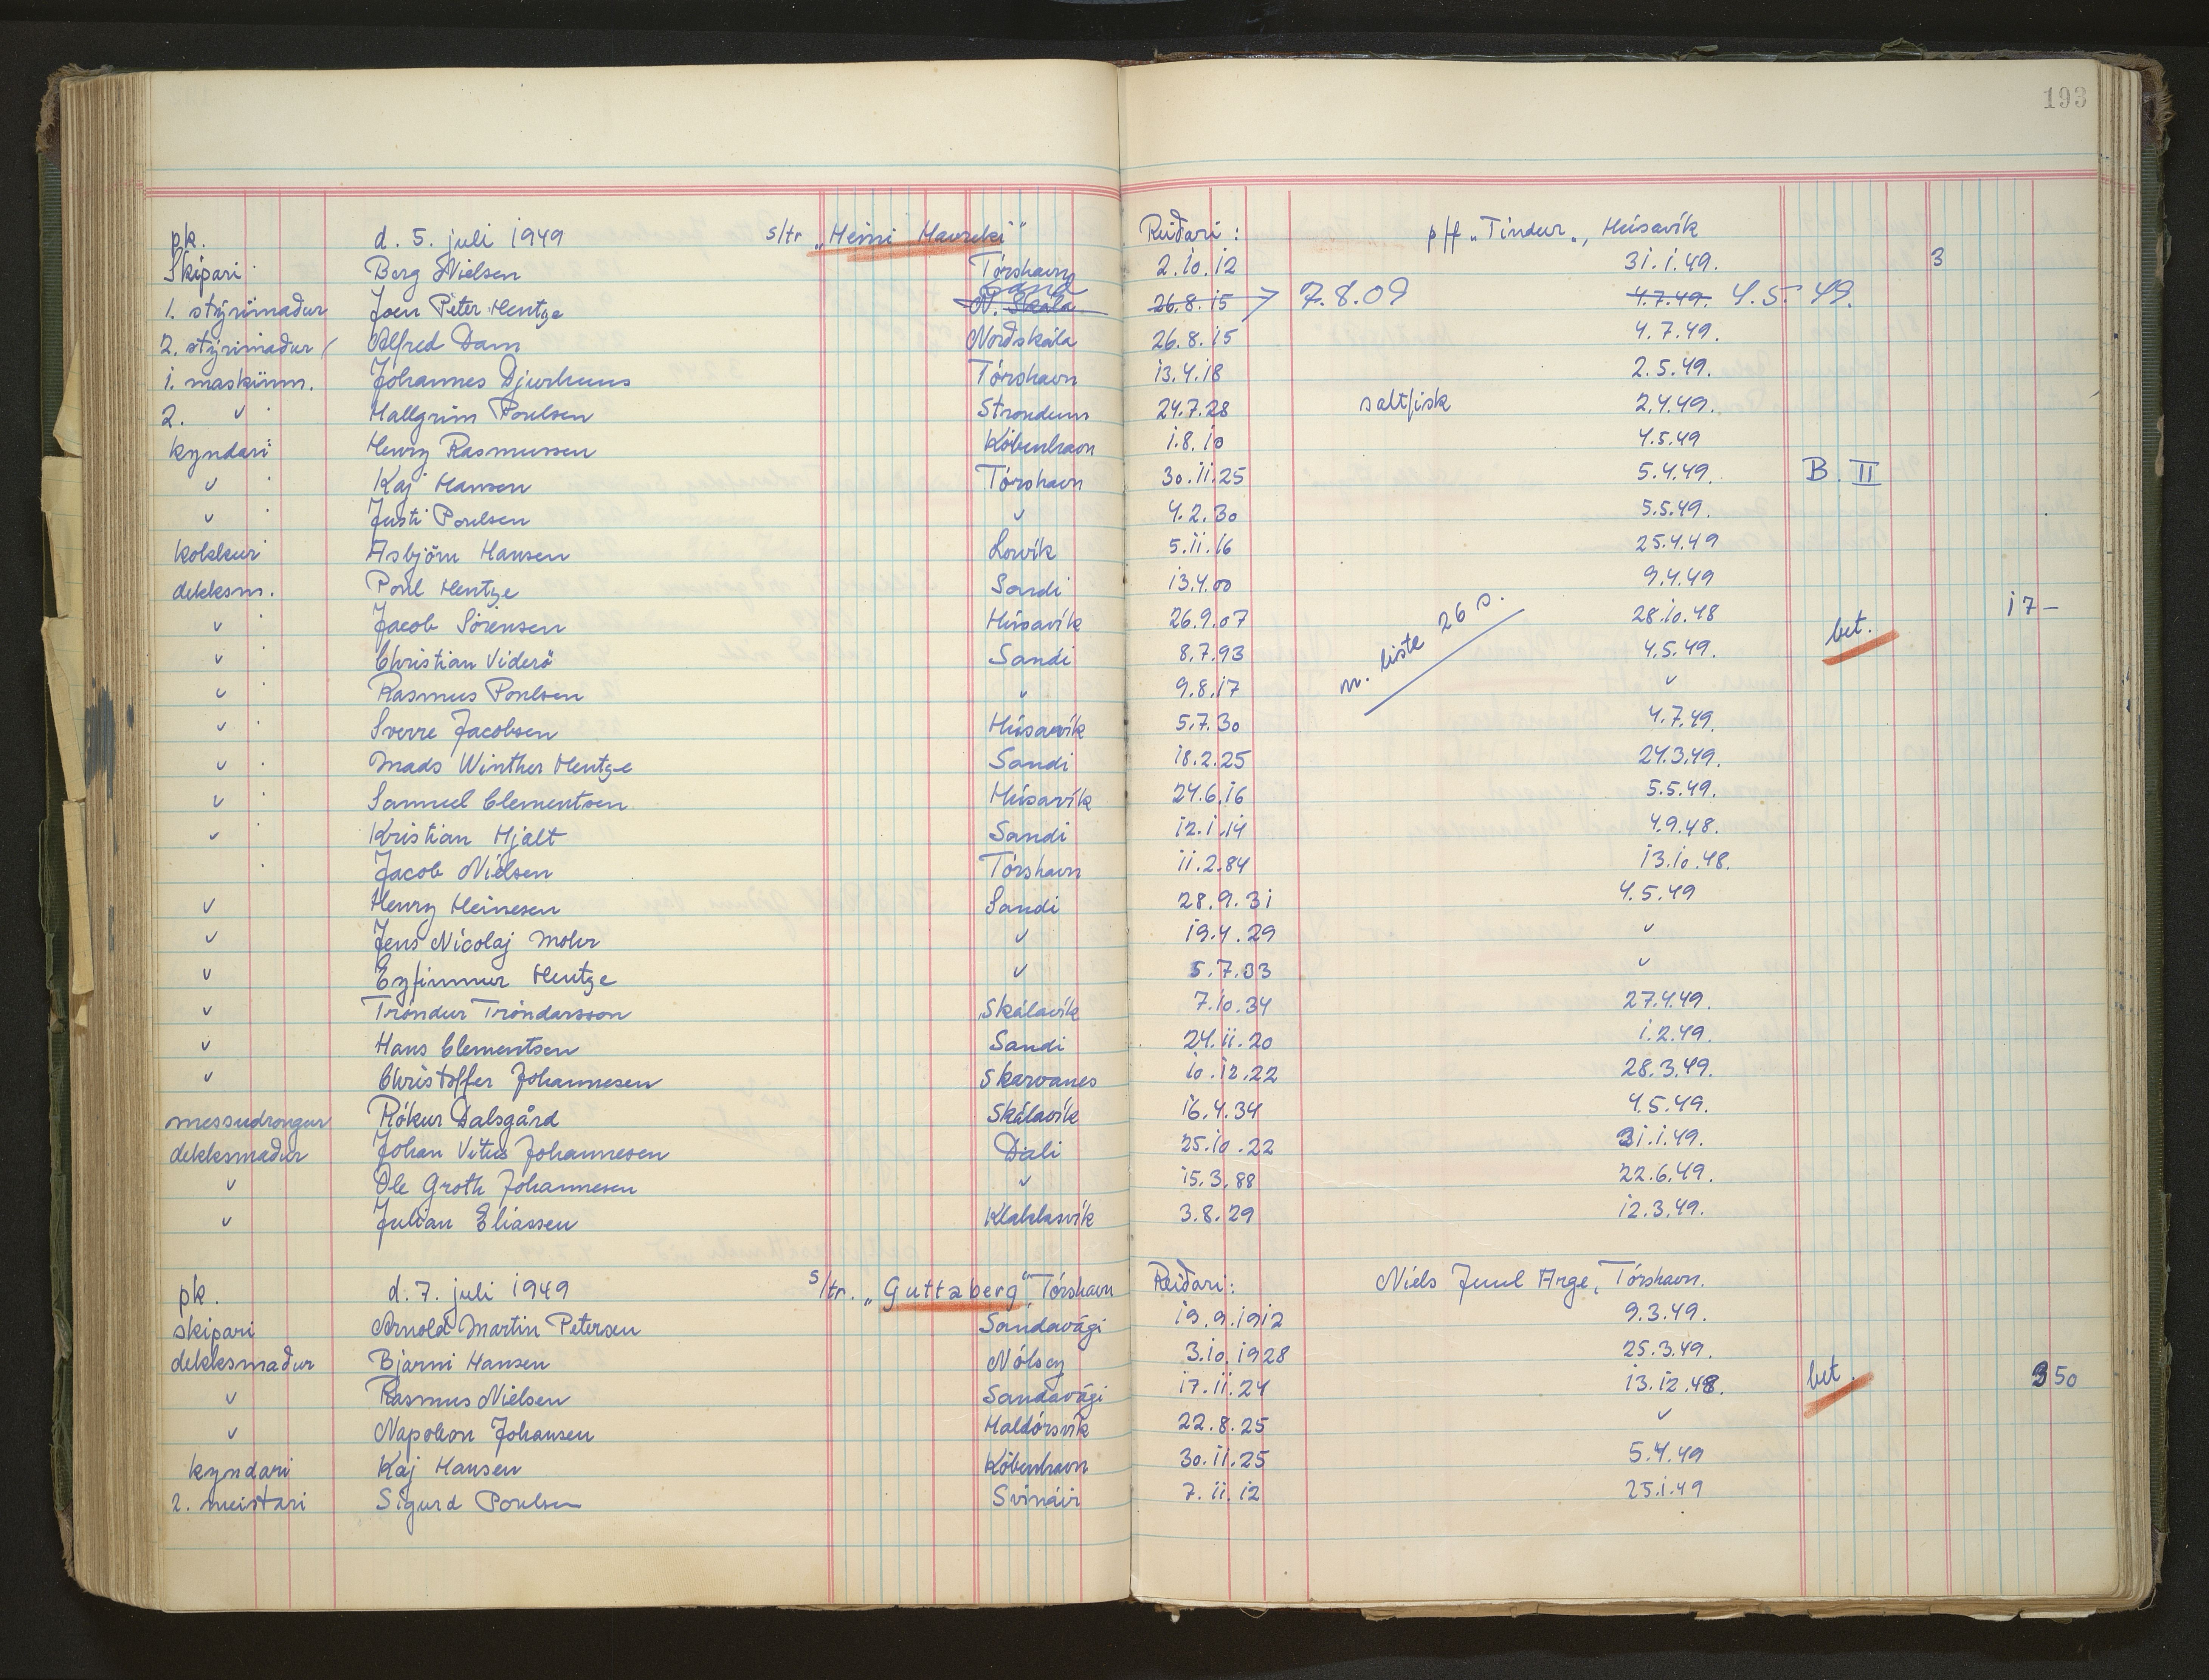 193
pk. d. 5. juli 1949 s/tr „Heini Havreki" Reiðari: p/f „Tindur„, Húsavík
Skipari Berg Nielsen Tórshavn 2.10.12 31.1.49. 3
Sand
1. stýrimaður Joen Peter Hentze N. Skála 26.8.15 7.8.09 4.7.49. 4.5.49.
2. stýrimaður Alfred Dam Norðskála 26.8.15 4.7.49.
1. maskinm. Jóhannes Djurhuus Tórshavn 13.4.18 2.5.49.
2. v Hallgrim Poulsen Strondum 24.7.28 saltfisk 2.4.49.
kyndari Henry Rasmussen Köbenhavn 1.8.10 4.5.49
v Kaj Hansen Tórshavn 30.11.25 5.4.49. B. II
v Justi Poulsen v 4.2.30 5.5.49.
kokkur Asbjörn Hansen Lorvík 5.11.16 25.4.49
dekksm. Poul Hentze Sandi 13.4.00 9.4.49
v Jacob Sörensen Húsavík 26.9.07 28.10.48 17-
m. liste 26 s. bet.
v Christian Viderö Sandi 8.7.93 4.5.49.
v Rasmus Poulsen v 9.8.17 v
v Sverre Jacobsen Húsavík 5.7.30 4.7.49.
v Mads Winther Hentze Sandi 18.2.25 24.3.49.
v Samuel Clementsen Húsavík 24.6.16 5.5.49.
v Kristian Hjalt Sandi 12.1.14 4.9.48.
Jacob Nielsen Tórshavn 11.2.84 13.10.48.
v Henry Heinesen Sandi 28.9.31 4.5.49
v Jens Nicolaj Mohr v 19.4.29 v
v Eyfinnur Hentze v 5.7.33 v
v Tróndur Tróndarsson Skálavík 7.10.34 27.4.49.
v Hans Clementsen Sandi 24.11.20 1.2.49.
v Christoffer Johannesen Skarvanes 10.12.22 28.3.49.
messudrongur Rókur Dalsgård Skálavík 16.4.34 4.5.49.
dekksmaður Johan Vitus Johannesen Dali 25.10.22 31.1.49.
v Ole Groth Johannesen v 15.3.88 22.6.49.
v Julian Eliassen Klakksvík 3.8.29 12.3.49.
pk. d. 7. juli 1949 s/tr. „Guttaberg", Tórshavn Reiðari: Niels Juul Arge, Tórshavn.
skipari Arnold Martin Petersen Sandavági 19.9.1912 9.3.49.
dekksmaður Bjarni Hansen Nólsoy 3.10.1928 25.3.49.
v Rasmus Nielsen Sandavági 17.11.24 13.12.48. bet. 350
v Napoleon Johansen Haldórsvík 22.8.25 v
kyndari Kaj Hansen Köbenhavn 30.11.25 5.4.49
2. meistari Sigurd Poulsen Svínáir 7.11.12 25.1.49